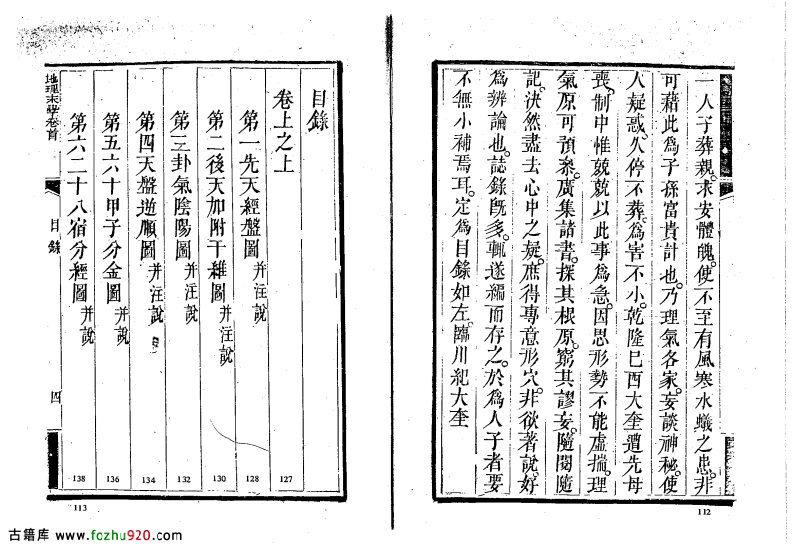 一人子葬親。求安體魄。使不至有風寒水蟻之患。非
可藉此為子孫富貴計也。乃理氣各家。妄談神秘。使
人疑惑。久停不葬。為害不小。乾隆己酉大奎遭先母
喪。制中惟兢兢以此事為急。因思形勢不能虛揣。理
氣原可預叅。廣集諸書。探其根原。窮其謬妄。隨閱隨
記。決然盡去心中之疑。庶得專意形穴。非欲著說。好
為辨論也。誌錄既多。輒遂編而存之。於為人子者。要
不無小補焉耳。定為目錄如左。臨川紀大奎
112
地理末學卷首
目錄
四
目錄
卷上之上
127
第一先天經盤圖 并注說
128
第二後天加附干維圖 并注說
130
第三卦氣陰陽圖 并注說
132
第四天盤逆順圖 并注說
134
第五六十甲子分金圖 并說
136
第六二十八宿分經圖 并說
138
113
古籍库 www.fozhu920.com